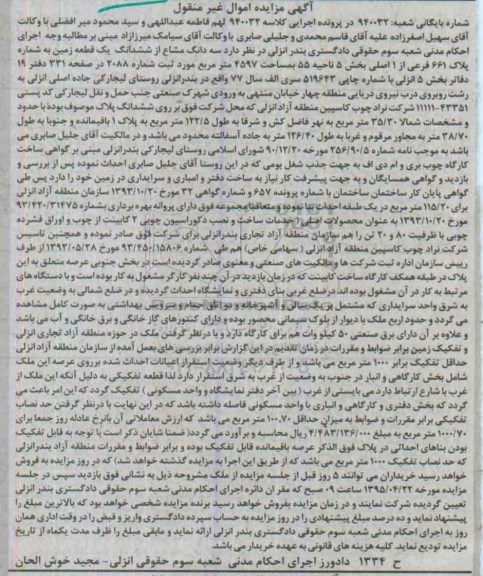 آگهی مزایده اموال غیر منقول
شماره بایگانی شعبه: ۹۴۰۰۳۲ در پرونده اجرایی کلاسه ۹۴۰۰۳۲ لهم فاطمه عبداللهی و سید محمود میر افضلی با وکالت
آقای سهیل اصغرزاده علیه آقای قاسم محمدی و جلیلی صابری با وکالت آقای سیامک میرزازاد مبنی بر مطالبه وجه اجرای
احکام مدنی شعبه سوم حقوقی دادگستری بندر انزلی در نظر دارد سه دانگ مشاع از ششدانگ یک قطعه زمین به شماره
پلاک ۶۶۱ فرعی از ۱ اصلی بخش ۵ ناحیه ۵۵ بمساحت ۴۵۹۷ متر مربع مورد ثبت شماره ۲۰۸۸ در صفحه ۳۳۱ دفتر ۱۹
دفاتر بخش ۵ انزلی با شماره چاپی ۵۱۹۶۴۳ سری الف سال ۷۷ واقع در بندرانزلی روستای لیجارکی جاده اصلی انزلی به
رشت روبروی درب نیروی دریایی منطقه چهار خیابان منتهی به ورودی شهرک صنعتی جنب حمل و نقل لیجارکی کد پستی
۴۳۳۵۱-۱۱۱۱۱ شرکت نراد چوب کاسپین منطقه آزاد انزلی که محل شرکت فوق بر روی ششدانگ پلاک موصوف بوده با حدود
و مشخصات شمالا ۳۵/۳۰ متر مربع به نهر فاضل کش و شرقا به طول ۱۲۲/۵ متر مربع به پلاک ۱ باقیمانده و جنوبا به طول
۳۸/۷۰ متر به مجاور مرقوم و غربا به طول ۱۲۶/۴۰ متر به جاده آسفالته محدود می باشد و در مالکیت آقای جلیل صابری می
باشد به موجب نامه شماره ۲۵۶/۹۰/۵ مورخه ۹۰/۱۲/۲۰ شورای اسلامی روستای لیجارکی بندرانزلی مبنی بر گواهی ساخت
کارگاه چوب بری و ام دی اف به جهت جذب شغل بومی که در این روستا آقای جلیل صابری احداث نموده پس از بررسی و
بازدید و گواهی همسایگان و به جهت پیشرفت کار نیاز به ساخت دفتر و انباری و سرایداری در زمین خود را دارد پس طی
گواهی پایان کار ساختمان ساختمان با شماره پرونده ۶۵۷ و شماره گواهی ۳۲ مورخ ۱۳۹۳/۱۰/۲۰ سازمان منطقه آزاد انزلی
برای ۱۱۵/۲۰ متر مربع در یک طبقه احداث بنا نموده و متعاقبا مجموعه فوق دارای پروانه بهره برداری بشماره ۹۳/۴۲۰/۳۱۴۷۵
مورخ ۱۳۹۳/۱۰/۲۰ به عنوان محصولات اصلی (خدمات ساخت و نصب دکوراسیون چوبی ۲ کابینت از چوب و اوراق فشرده
چوبی با ظرفیت ۸۰ و ۲۰ تن را هم سازمان منطقه آزاد تجاری بندرانزلی برای شرکت فوق صادر نموده و همچنین تاسیس
شرکت نراد چوب کاسپین منطقه آزاد انزلی (سهامی خاص) هم طی شماره ۹۳/۴۵۰/۱۵۸۰۶ مورخ ۱۳۹۳/۰۵/۲۸ از طرف
رییس سازمان اداره ثبت شرکت ها و مالکیت های صنعتی و معنوی صادر گردیده است در بخش جنوبی عرصه متعلق به این
پلاک در طبقه همکف کارگاه ساخت کابینت که در زمان بازدید در آن چند نفر کارگر مشغول به کار بوده است و با دستگاه های
مرتبط به کار در آن مشغول بوده اند در ضلع غربی بنای دفتری و نمایشگاه احداث گردیده و در ضلع شمالی به وضعیت غرب
به شرق واحد سرایداری که مشتمل بر یک سالن و آشپزخانه و دو اتاق حمام و سرویس بهداشتی به صورت کامل مشاهده
می گردد و حدود اربع ملک با دیوار از بلوک سیمانی محصور بوده و دارای کنتورهای گاز خانگی و برق خانگی و آب می باشد
و علاوه بر آن دارای برق صنعتی ۵۰ کیلو وات هم برای کارگاه دارد و با درنظر گرفتن ملک در حوزه منطقه آزاد تجاری انزلی
و تفکیک زمین برابر ضوابط و مقررات در زمان تقدیم در این گزارش برابر بررسی های بعمل آمده از سازمان منطقه آزاد انزلی
حداقل تفکیک برابر ۱۰۰۰ متر مربع می باشد، و از طرف دیگر وضعیت استقرار اعیانات احداث شده برروی عرصه این ملک
شامل بخش کارگاهی و انبار در جنوب به وضعیت از غرب به شرق استقرار دارد لذا قطعه تفکیکی به دلیل آنکه این ملک از
غرب با شارع ارتباط دارد می بایستی از غرب ( بین آخر دفتر نمایشگاه و واحد مسکونی ) تفکیک گردد که این امر باعث می
گردد که بخش دفتری و کارگاهی و انباری با واحد مسکونی فاصله داشته باشد که در این نهایت با درنظر گرفتن حد نصاب
تفکیکی برابر مقررات و ضوابط به میزان ۱۰۰۰,۷۰ متر مربع می باشد که ارزش معاملاتی آن بانرخ عادله روز جمعا برای
۱۰۰۰/۷۰ متر مربع به مبلغ ۴/۴۸۳/۱۳۶/۰۰۰ ریال محاسبه و برآورد می گردد(ضمنا شایان ذکر است با توجه به قابل تفکیک
بودن بناهای احداثی در پلاک فوق الذکر عرصه باقیمانده قابل تفکیک بوده و برابر ضوابط و مقررات منطقه آزاد بندرانزلی
که حد نصاب تفکیک ۱۰۰۰ متر مربع می باشد که از طریق این اجرا به مزایده گذشته خواهد شد) که در روز مزایده به فروش
خواهد رسید خریداران می توانند ۵ روز قبل از جلسه مزایده از ملک مشروحه ذیل به نشانی فوق بازدید سپس در جلسه
مزایده مورخه ۱۳۹۵/۰۴/۲۲ ساعت ۰۹ صبح که مقر ان دائره اجرای احکام مدنی شعبه سوم حقوقی دادگستری بندر انزلی
تعیین گردیده شرکت نمایند و در زمان مزایده بفروش خواهد رسید برنده مزایده شخصی خواهد بود که بالاترین مبلغ را
پیشنهاد نماید و ده درصد مبلغ پیشنهادی را در روز مزایده به حساب سپرده دادگستری واریز و قبض را در وقت اداری همان
روز به اجرای احکام مدنی شعبه سوم حقوقی دادگستری بندر انزلی ارائه نماید و مابقی مبلغ را ظرف مدت یکماه از تاریخ
مزایده تودیع نماید. کلیه هزینه های قانونی به عهده خریدار می باشد.
ح ۱۳۳۴ دادورز اجرای احکام مدنی شعبه سوم حقوقی انزلی- مجید خوش الحان